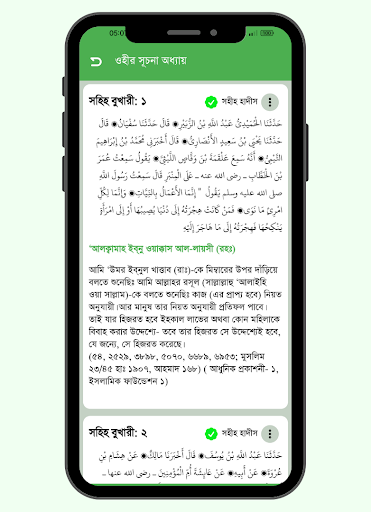 05:0
ওহীর সূচনা অধ্যায়
সহিহ বুখারী: ১
সহীহ হাদীস
حَدَّثَنَا الْحُمَيْدِيُّ عَبْدُ اللَّهِ بْنُ الزُّبَيْرِ، قَالَ حَدَّثَنَا سُفْيَانُ، قَالَ
حَدَّثَنَا يَحْيَى بْنُ سَعِيدٍ الأَنْصَارِيُّ، قَالَ أَخْبَرَنِي مُحَمَّدُ بْنُ إِبْرَاهِيمَ
التَّيْمِيُّ، أَنَّهُ سَمِعَ عَلْقَمَةَ بْنَ وَقَّاصٍ اللَّيْثِيَّ، يَقُولُ سَمِعْتُ عُمَرَ
بْنَ الْخَطَّابِ ـ رضى الله عنه ـ عَلَى الْمِنْبَرِ قَالَ سَمِعْتُ رَسُولَ اللَّهِ
صلى الله عليه وسلم يَقُولُ " إِنَّمَا الأَعْمَالُ بِالنِّيَّاتِ، وَإِنَّمَا لِكُلِّ
امْرِئٍ مَا نَوَى، فَمَنْ كَانَتْ هِجْرَتُهُ إِلَى دُنْيَا يُصِيبُهَا أَوْ إِلَى امْرَأَةٍ
يَنْكِحُهَا فَهِجْرَتُهُ إِلَى مَا هَاجَرَ إِلَيْهِ
'আলক্বামাহ ইব্‌নু ওয়াক্কাস আল-লায়সী (রহঃ)
আমি 'উমর ইব্‌নুল খাত্তাব (রাঃ)-কে মিম্বারের উপর দাঁড়িয়ে
বলতে শুনেছিঃ আমি আল্লাহর রসূল (সাল্লাল্লাহু 'আলাইহি
ওয়া সাল্লাম)-কে বলতে শুনেছিঃ কাজ (এর প্রাপ্য হবে) নিয়ত
অনুযায়ী।আর মানুষ তার নিয়ত অনুযায়ী প্রতিফল পাবে।
তাই যার হিজরত হবে ইহকাল লাভের অথবা কোন মহিলাকে
বিবাহ করার উদ্দেশ্যে- তবে তার হিজরত সে উদ্দেশ্যেই হবে,
যে জন্যে, সে হিজরত করেছে।
(৫৪, ২৫২৯, ৩৮৯৮, ৫০৭০, ৬৬৮৯, ৬৯৫৩; মুসলিম
২৩/৪৫ হাঃ ১৯০৭, আহমাদ ১৬৮) ( আধুনিক প্রকাশনী- ১,
ইসলামিক ফাউন্ডেশন ১)
সহিহ বুখারী: ২
সহীহ হাদীস
حَدَّثَنَا عَبْدُ اللَّهِ بْنُ يُوسُفَ، قَالَ أَخْبَرَنَا مَالِكٌ، عَنْ هِشَامِ بْنِ
عُرْوَةَ، عَنْ أَبِيهِ، عَنْ عَائِشَةَ أُمِّ الْمُؤْمِنِينَ ـ رضى الله عنها ـ